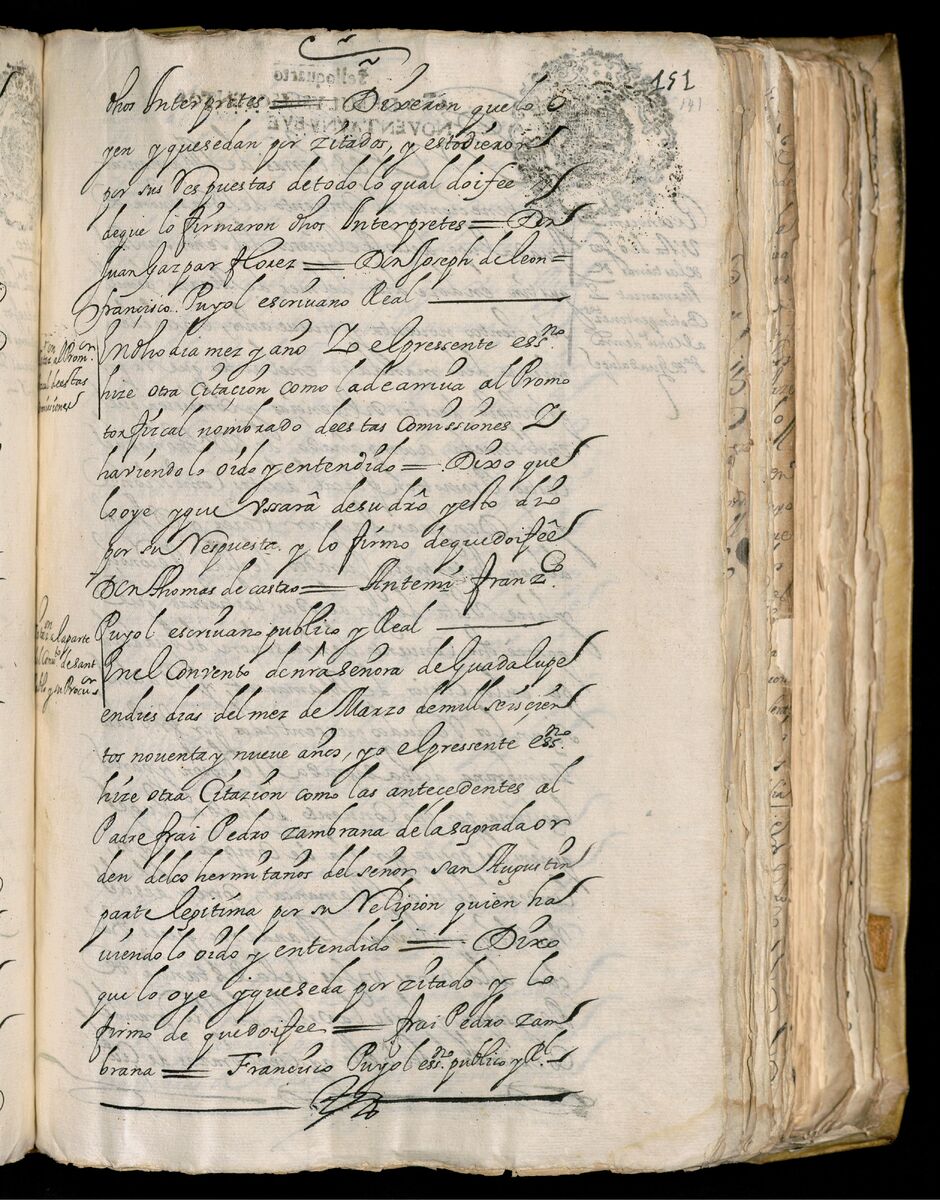 151
dhos Interpretes = Dixeron que lo o
yen y quesedan por zitados, y estodieron
por sus Respuestas detodo lo qual doifee
deque lo firmaron dhos Interpretes = Dn
Juan Gazpar florez = Dn Joseph de leon =
françisco Puyol escriuano Real
En dho dia mez y año Yo elpressente essno
hize otra Çitaçion como la de arriva al Promo
tor fiscal nombrado deestas Comissiones Y
haviendo lo oido y entendido = Dixo que
lo oye yque Vssarâ desu drô yesto dio
por su Respuesta y lo firmo dequedoifeê
Dn Thomas de castro = Antemi franzco
Puyol escriuano publico y Real
En el Convento de nrâ señora de Guadalupe
en dies dias del mez de Marzo demill seis çien
tos noventa y nueve años, yo elpressente essno
hize otra Çitazion como las antecedentes al
Padre frai Pedro zambrana delasagrada or
den delos hermitaños del señor san Augustin
parte legitima por su Religion quien ha
uiendo lo oido y entendido = Dixo
que lo oye yqueseda por zitado y lo
firmo de quedoifee = frai Pedro zam
brana = Françisco Puyol essno publico y Rl